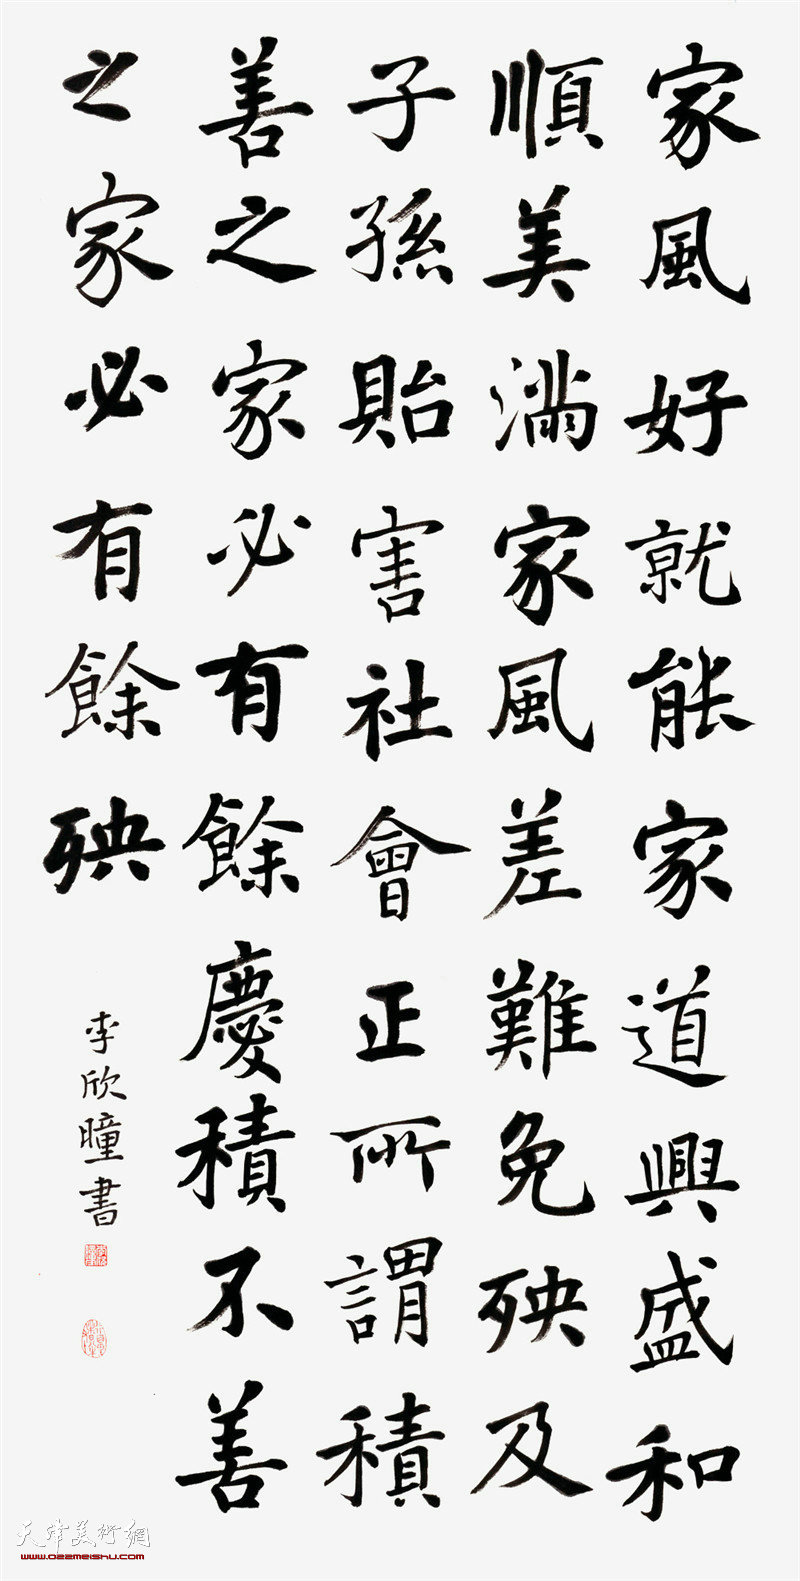 家風好就能家道興盛和
順美滿家風差難免殃及
子孫貽害社會正所謂積
善之家必有餘慶積不善
之家必有餘殃
李欣瞳書
天津美術網
www.022meishu.com